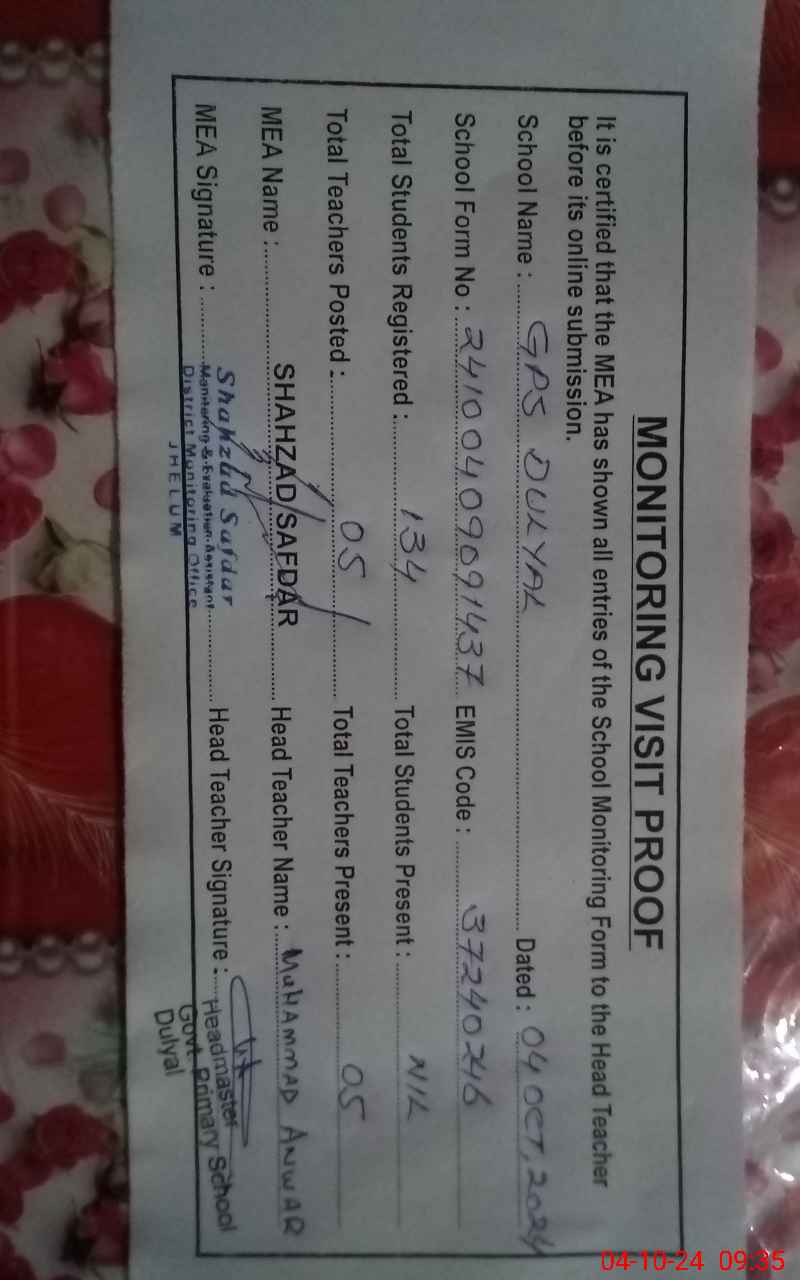 MONITORING VISIT PROOF
It is certified that the MEA has shown all entries of the School Monitoring Form to the Head Teacher
before its online submission.
School Name : GPS DULYAL Dated : 04 OCT, 2024
School Form No : 2410040909091437 EMIS Code : 37240246
Total Students Registered : 134 Total Students Present : NIL
Total Teachers Posted : 05 Total Teachers Present : 05
MEA Name : SHAHZAD SAFDAR Head Teacher Name : MUHAMMAD ANWAR
MEA Signature : Head Teacher Signature :
Shahzad Safdar
Monitoring & Evaluation Assistant
District Monitoring Office
JHELUM
Headmaster
Govt. Primary School
Dulyal
04-10-24 09:35